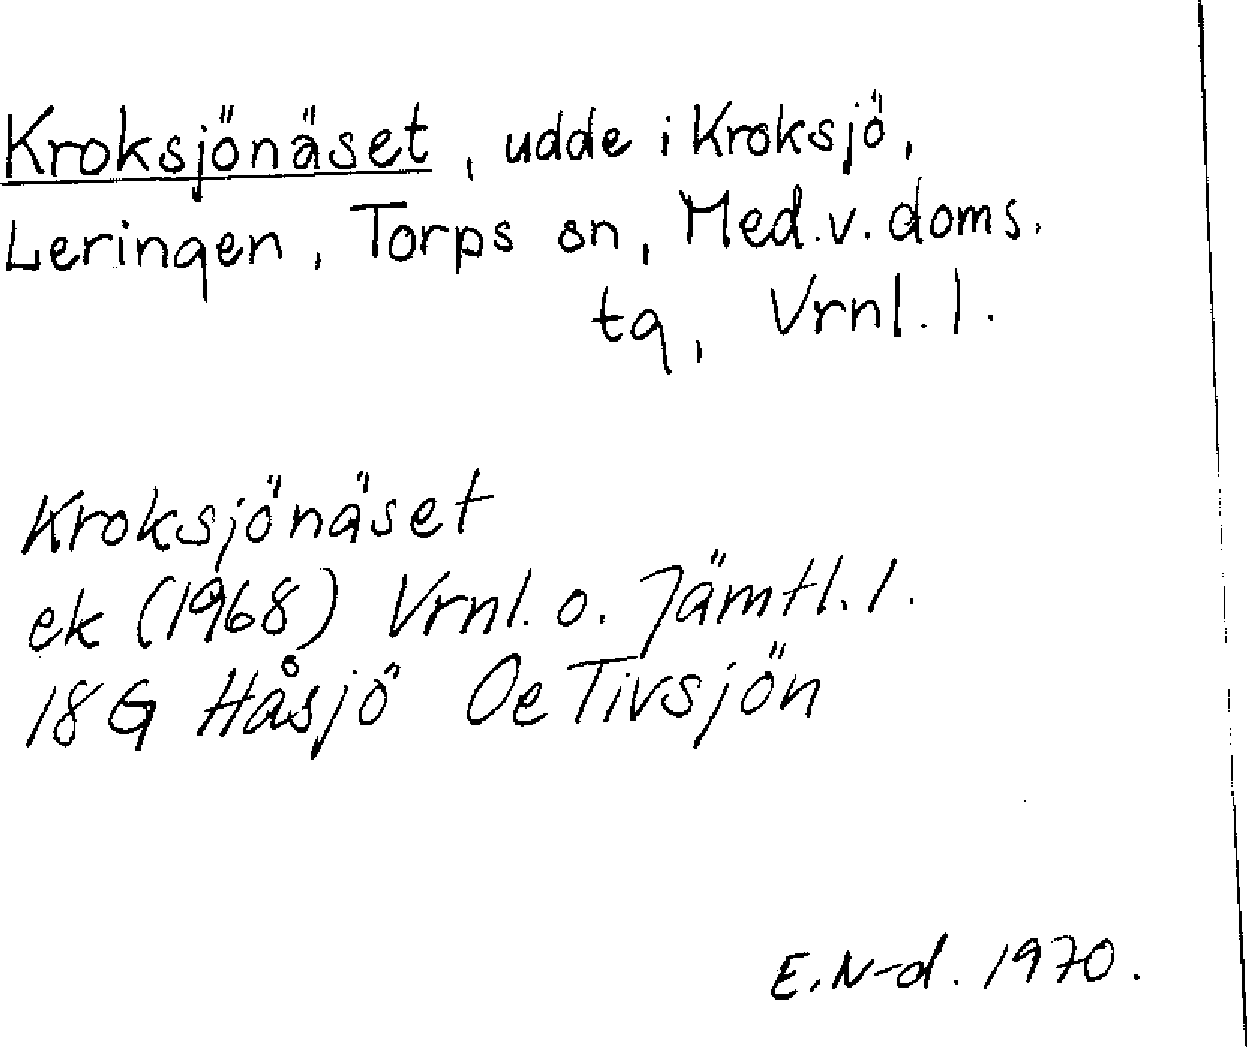 Kroksjönäset, udde i Kroksjö,
Leringen, Torps sn, Med. v. doms.
tg, Vrnl. l.
Kroksjönäset
ek (1968) Vrnl. o. Jämtl. l.
18G Håsjö Oe Tivsjön
E. N-d. 1970.